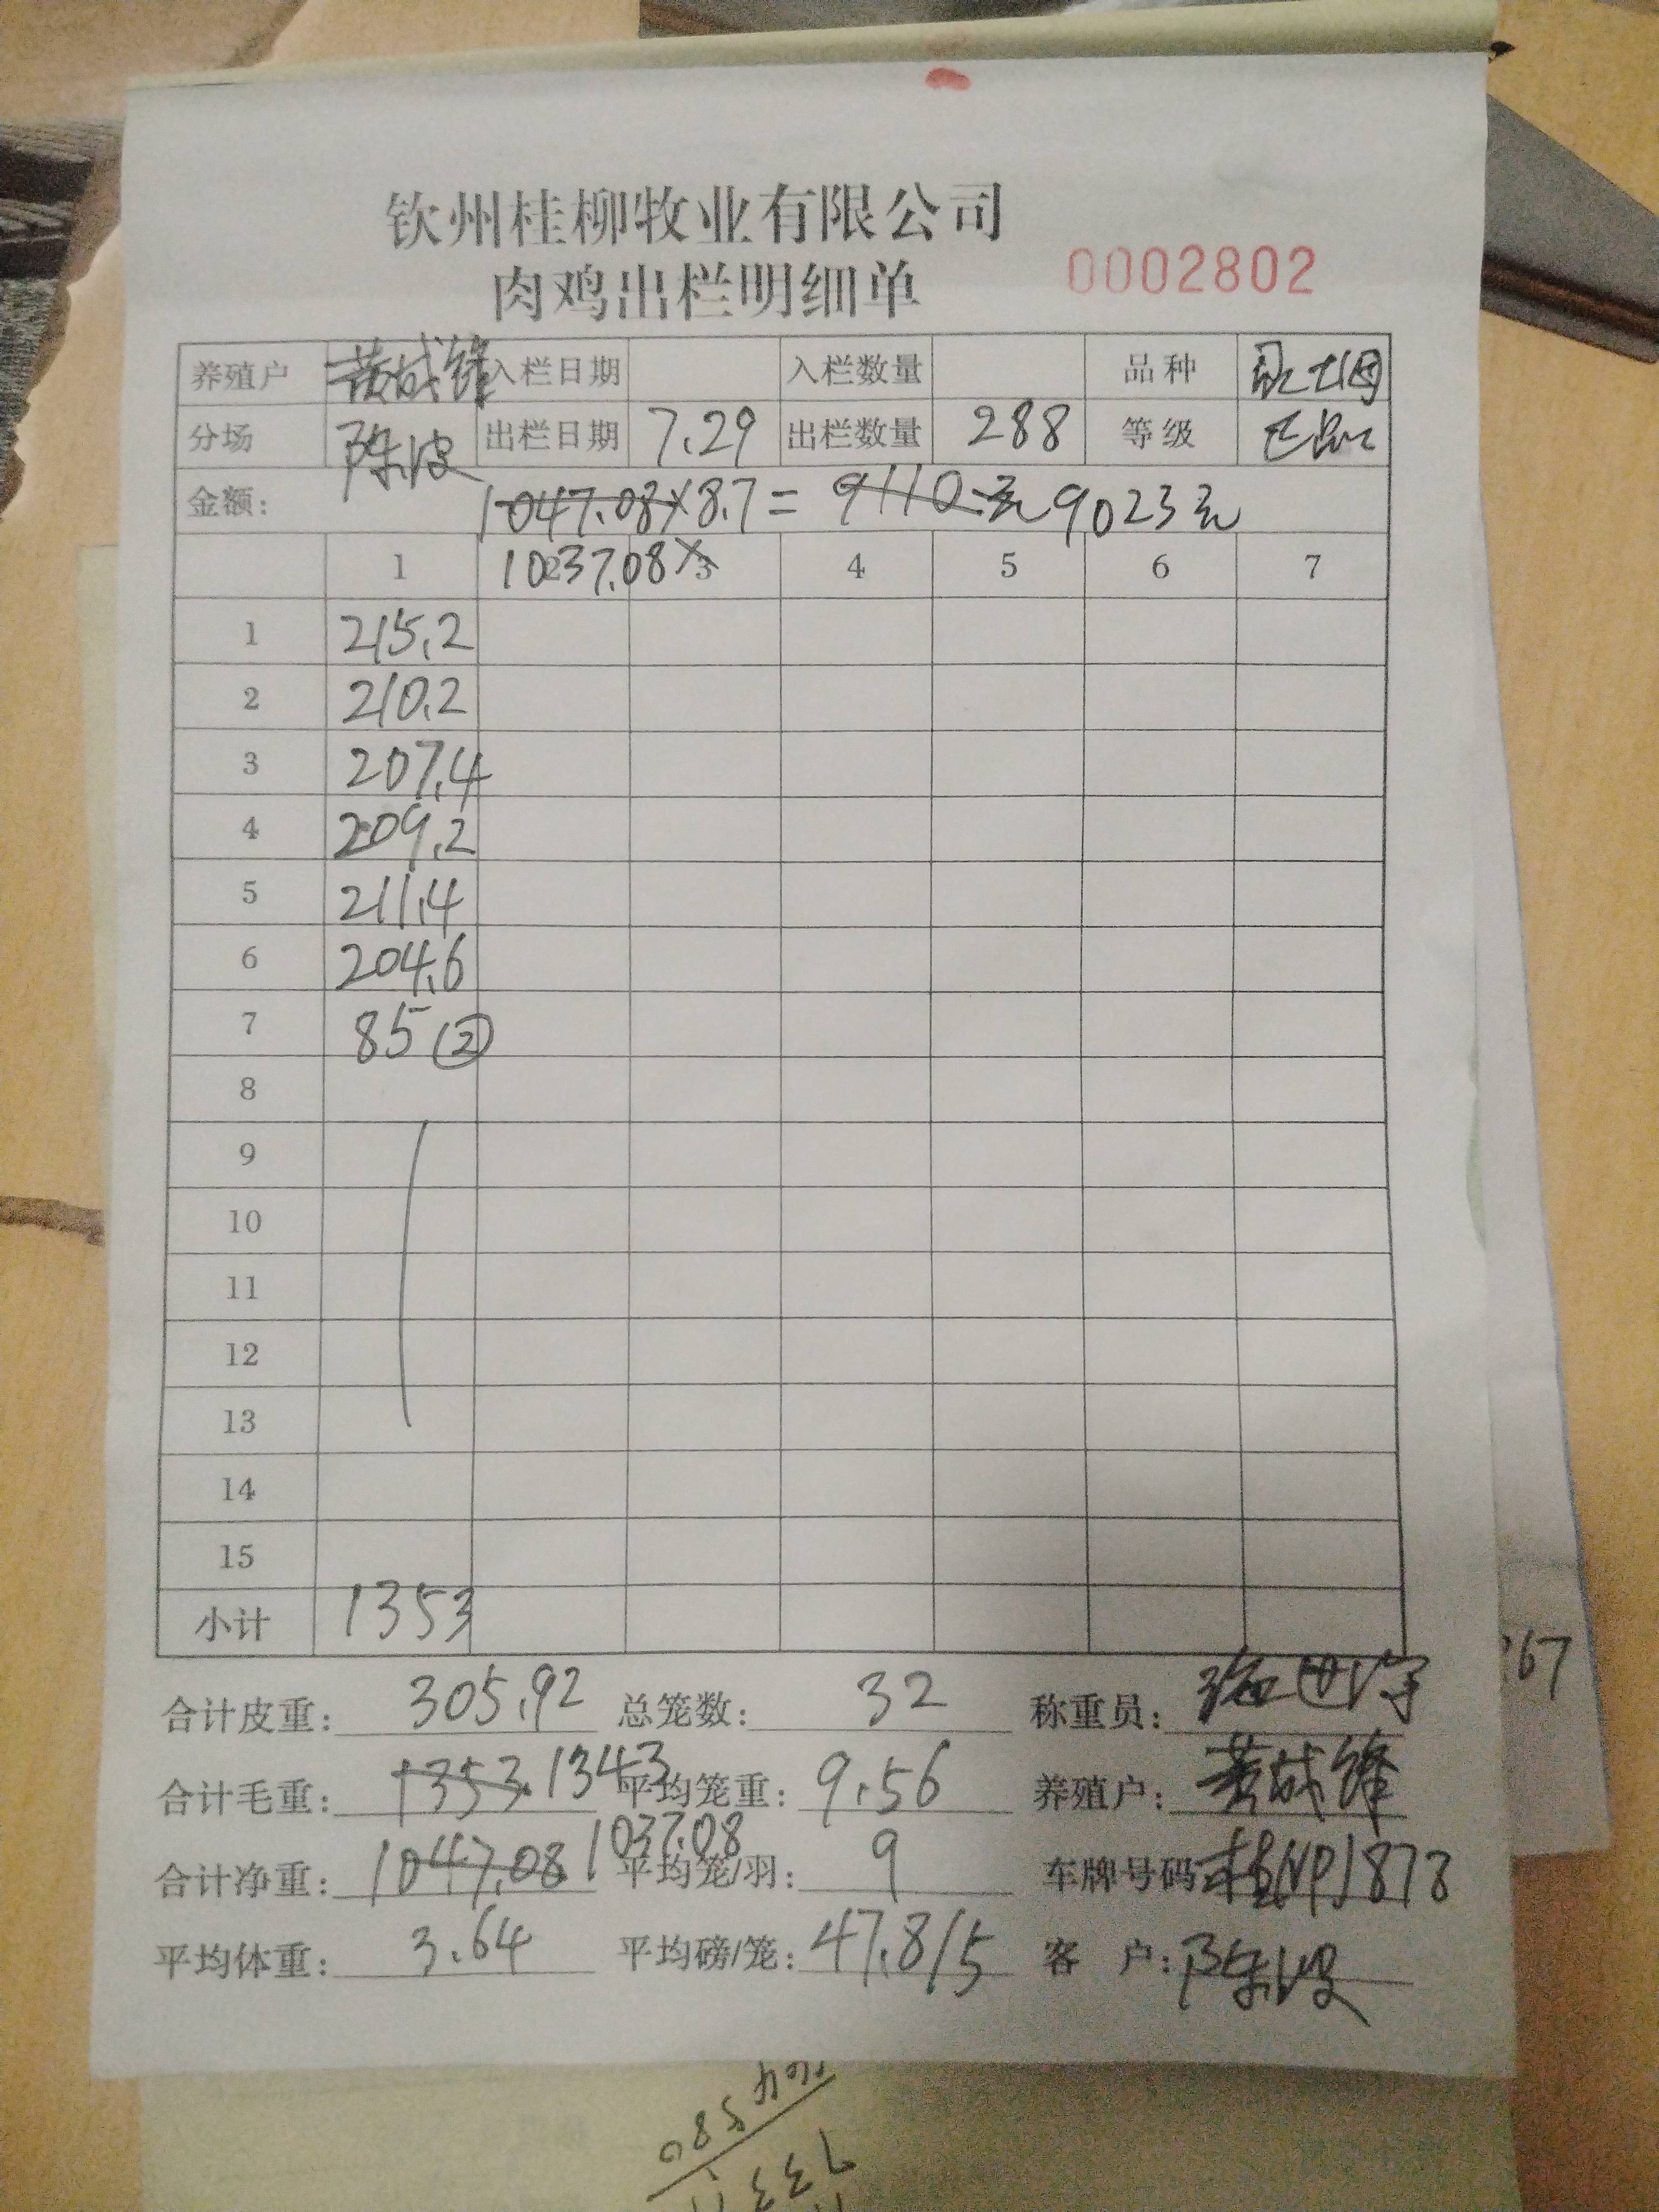 钦州桂柳牧业有限公司
肉鸡出栏明细单 0002802
养殖户 黄成锋 入栏日期 入栏数量 品种
分场 陈波 出栏日期 7.29 出栏数量 288 等级 正品
金额: 1047.08×8.7= 9110元 9023元
1037.08×
1 2 3 4 5 6 7
1 215.2
2 210.2
3 207.4
4 209.2
5 211.4
6 204.6
7 85 ②
8
9
10
11
12
13
14
15
小计 1353
合计皮重: 305.92 总笼数: 32 称重员:
合计毛重: 1353 1343 平均笼重: 9.56 养殖户: 黄成锋
合计净重: 1047.08 1037.08 平均笼/羽: 9 车牌号码 桂NP1873
平均体重: 3.64 平均磅/笼: 47.8/5 客 户: 陈波
67